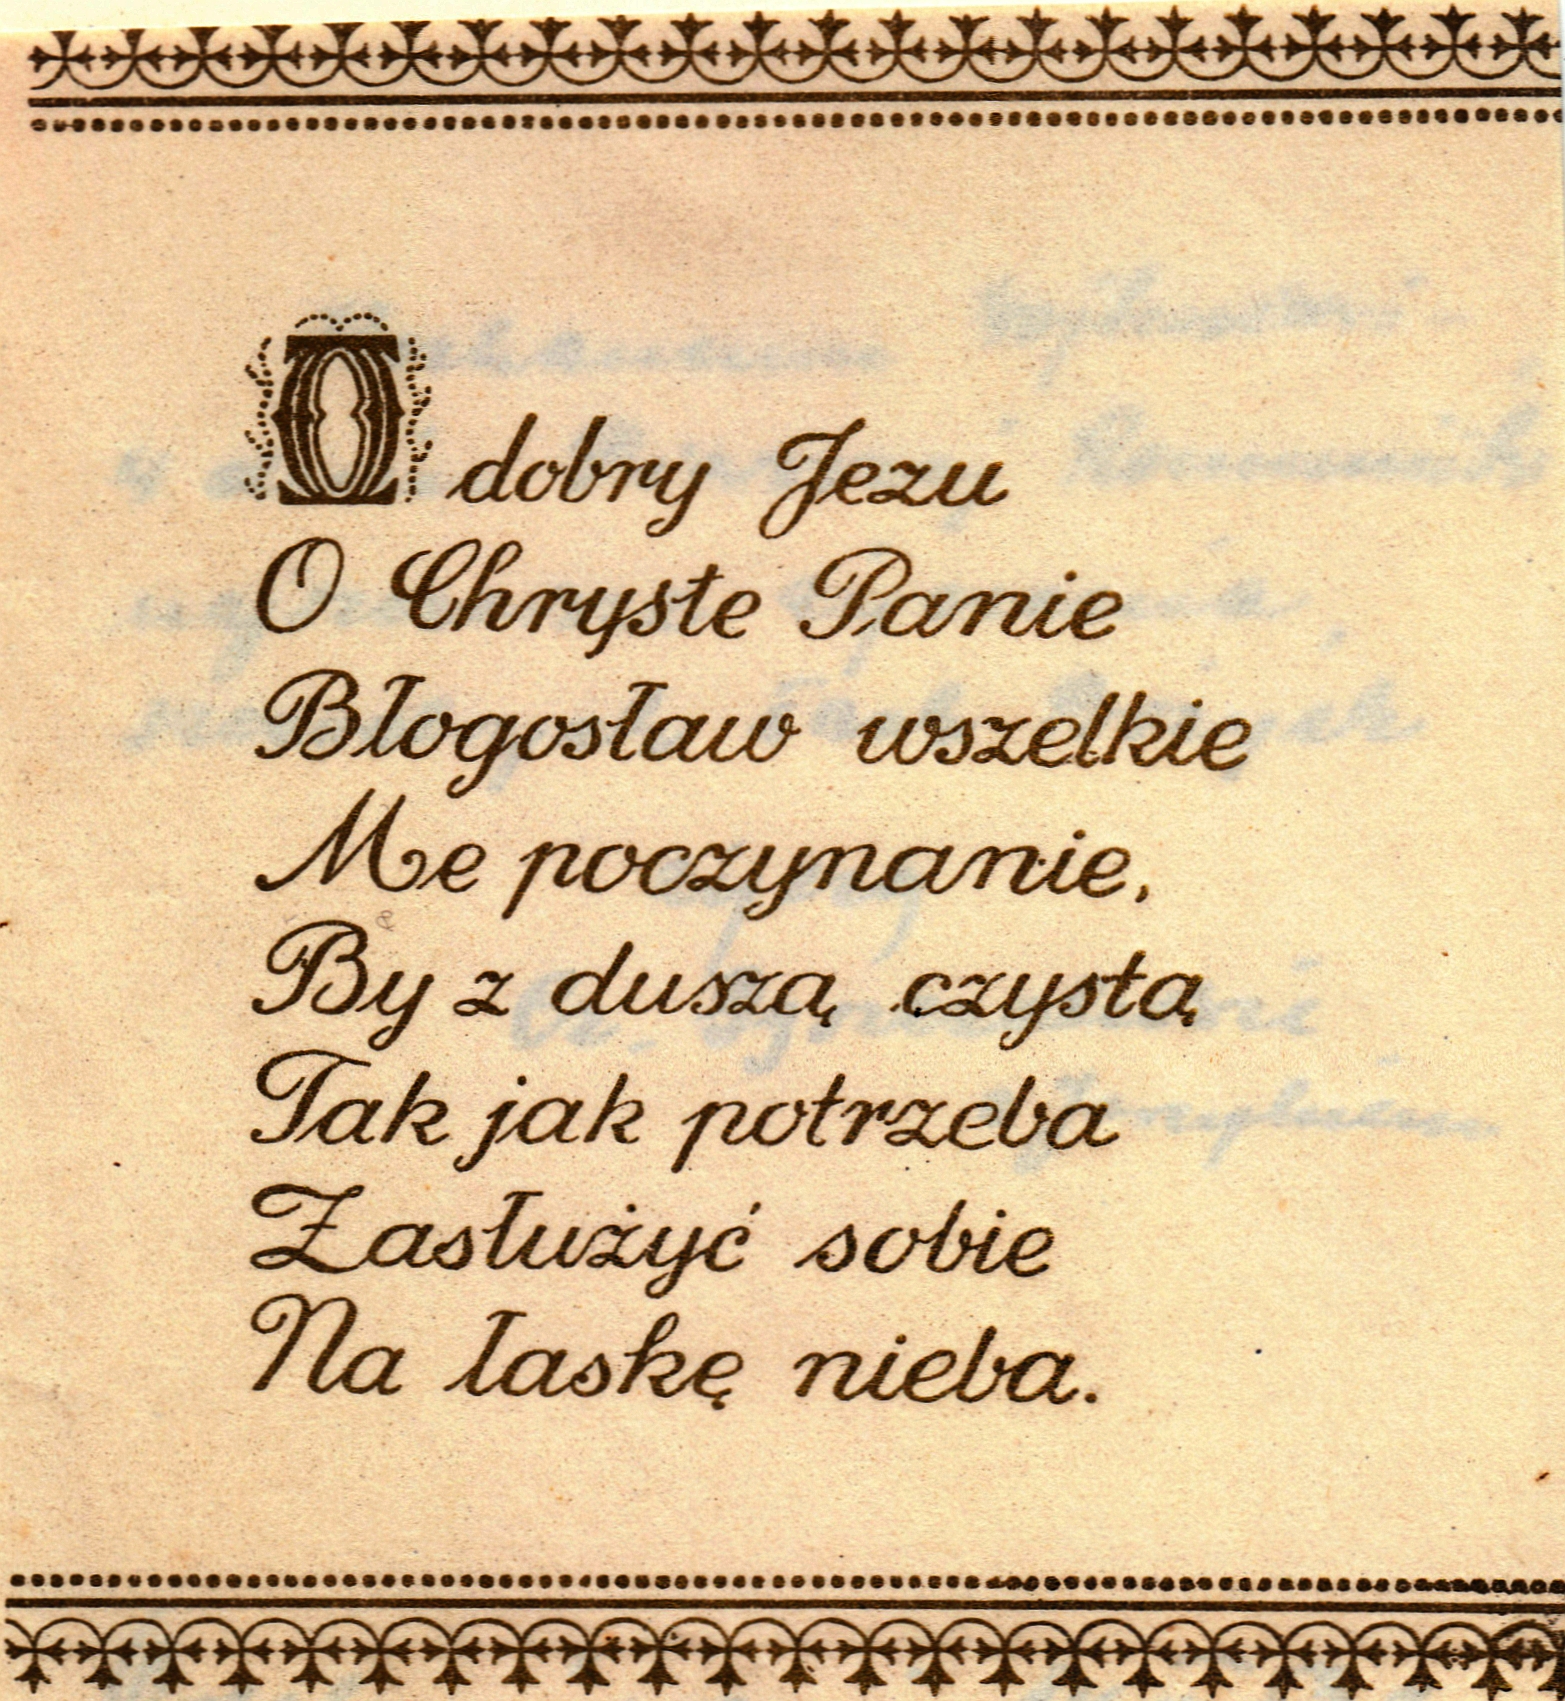 O dobry Jezu
O Chryste Panie
Błogosław wszelkie
Me poczynanie,
By z duszą czystą
Tak jak potrzeba
Zasłużyć sobie
Na łaskę nieba.